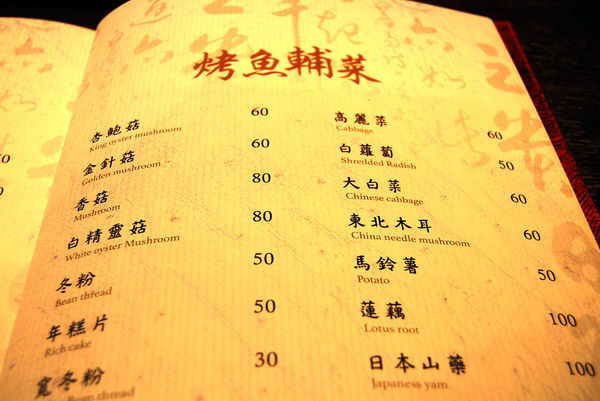 烤魚輔菜
杏鮑菇 60
King oyster mushroom
金針菇 60
Golden mushroom
香菇 80
Mushroom
白精靈菇 80
White oyster Mushroom
冬粉 50
Bean thread
年糕片 50
Rich cake
寬冬粉 30
Bean thread
高麗菜 60
Cabbage
白蘿蔔 50
Shredded Radish
大白菜 60
Chinese cabbage
東北木耳 60
China needle mushroom
馬鈴薯 50
Potato
蓮藕 100
Lotus root
日本山藥 100
Japanese yam